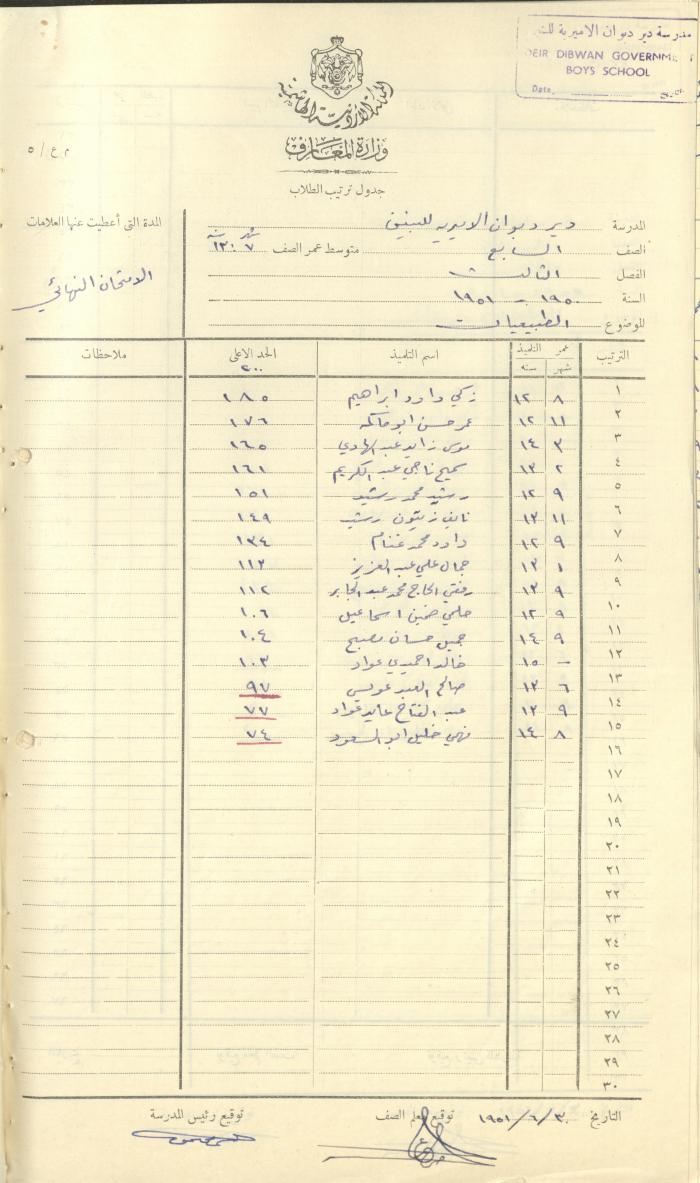 مدرسة دير ديوان الاميرية
DEIR DIBWAN GOVERNME
BOYS SCHOOL
Date
المملكة الأردنية الهاشمية
وزارة المعارف
م ع / ٥
جدول ترتيب الطلاب
المدرسة دير ديوان الاميريه للبنين
الصف السابع متوسط عمر الصف شهر ٧ سنه ١٣
الفصل الثالث
السنة ١٩٥٠ – ١٩٥١
الموضوع الطبيعيات
المدة التي أعطيت عنها العلامات
الامتحان النهائي
الترتيب عمر التلميذ شهر سنه اسم التلميذ الحد الاعلى ٢٠٠ ملاحظات
١ ٨ ١٢ زكي داود ابراهيم ١٨٥
٢ ١١ ١٢ عمر حسن ١٧٦
٣ ٣ ١٤ موسى زايد عبد الهادي ١٦٥
٤ ٢ ١٣ سميح ناجي عبد الكريم ١٦١
٥ ٩ ١٢ رشيد محمد رشيد ١٥١
٦ ١١ ١٣ نايف زيتون رشيد ١٤٩
٧ ٩ ١٢ داود محمد غنام ١٣٤
٨ ١ ١٣ جمال علي عبد العزيز ١١٣
٩ ٩ ١٣ رفقي الحاج محمد عبد الجابر ١١٢
١٠ ٩ ١٢ حلمي حسين اسماعيل ١٠٦
١١ ٩ ١٤ جميل حسان مصبح ١٠٤
١٢ – ١٥ خالد احميدي عواد ١٠٣
١٣ ٦ ١٣ صالح العبد عويس ٩٧
١٤ ٩ ١٣ عبد الفتاح عايد عواد ٧٧
١٥ ٨ ١٤ فهمي خليل ابو السعود ٧٤
١٦
١٧
١٨
١٩
٢٠
٢١
٢٢
٢٣
٢٤
٢٥
٢٦
٢٧
٢٨
٢٩
٣٠
التاريخ ٣٠/٦/١٩٥١ توقيع معلم الصف توقيع رئيس المدرسة